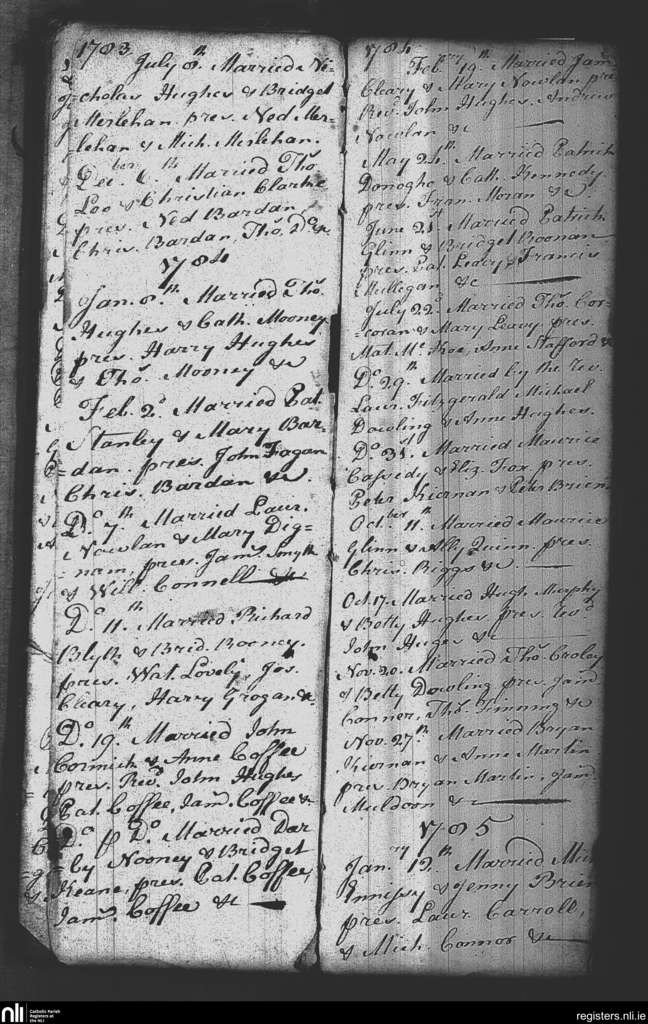 1783
July 8th Married Ni-
cholas Hughes & Bridget
Meslehan pres. Ned Mes-
lehan & Mich. Meslehan.
Decber 6th Maried Thos.
Loo & Christian Clarke
pres. Ned Bardan
Chris. Bardan, Thos. Do. &c
1784
Jan. 8th Married Thos.
Hughes & Cath. Mooney
pres. Harry Hughes
& Thos. Mooney &c
Feb. 2d. Married Pat.
Stanley & Mary Bar-
dan. pres. John Fagan
Chris. Bardan &c
Do. 7. Married Laur.
Nowlan & Mary Dig-
nam, pres. Jams. Smyth
& Will. Connell &c
Do. 11th Married Richard
Blyth & Brid. Rooney.
pres. Wat. Lovely Jos.
Cleary, Harry Grogan &c
Do. 19th Married John
Cormick & Anne Coffee
pres. Revd. John Hughes
Pat. Coffee, Jams. Coffee &c
Do. Do. Married Dar
by Nooney & Bridget
Keane, pres. Pat. Coffee,
Jams. Coffee &c
1784
Febry 19th Married Jams.
Cleary & Mary Nowlan pre
Revd. John Hughes. Andrew
Nowlan &c
May 24th Married Patrick
Donoghe & Cath. Kennedy
pres. Fran. Moran &c
June 21st Married Patrick
Glinn & Bridget Noonan
pres. Pat. Leary & Francis
Mullegan &c
July 22d Married Thos. Cor-
coran & Mary Leavy pres.
Mat. Mc. Kee, Anne Stafford &c
Do. 29th Married by the Rev.
Laur. Fitzgerald Michael
Dowling & Anne Hughes.
Do. 31st Married Maurice
Cassedy & Eliz. Fox. pres.
Peter Kiernan & Peter Brien
Octber 11th Married Maurice
Glinn & Ally Quinn. pres.
Chris. Riggs &c
Oct. 17. Married Hugh Murphy
& Betty Hughes pres. Revd.
John Huges &c
Nov. 20. Married Thos. Croley
& Betty Dowling pres. Jams.
Conner, Thos. Timmng &c
Nov. 27th Married Bryan
Kiernan & Anne Martin
pres. Bryan Martin, Jams.
Muldoon &c
1785
Janry 12th Married Mich
Innissy & Jenny Brien
pres. Laur. Carroll,
& Mich. Connor &c
nli Catholic Parish
Registers at
the NLI
registers.nli.ie